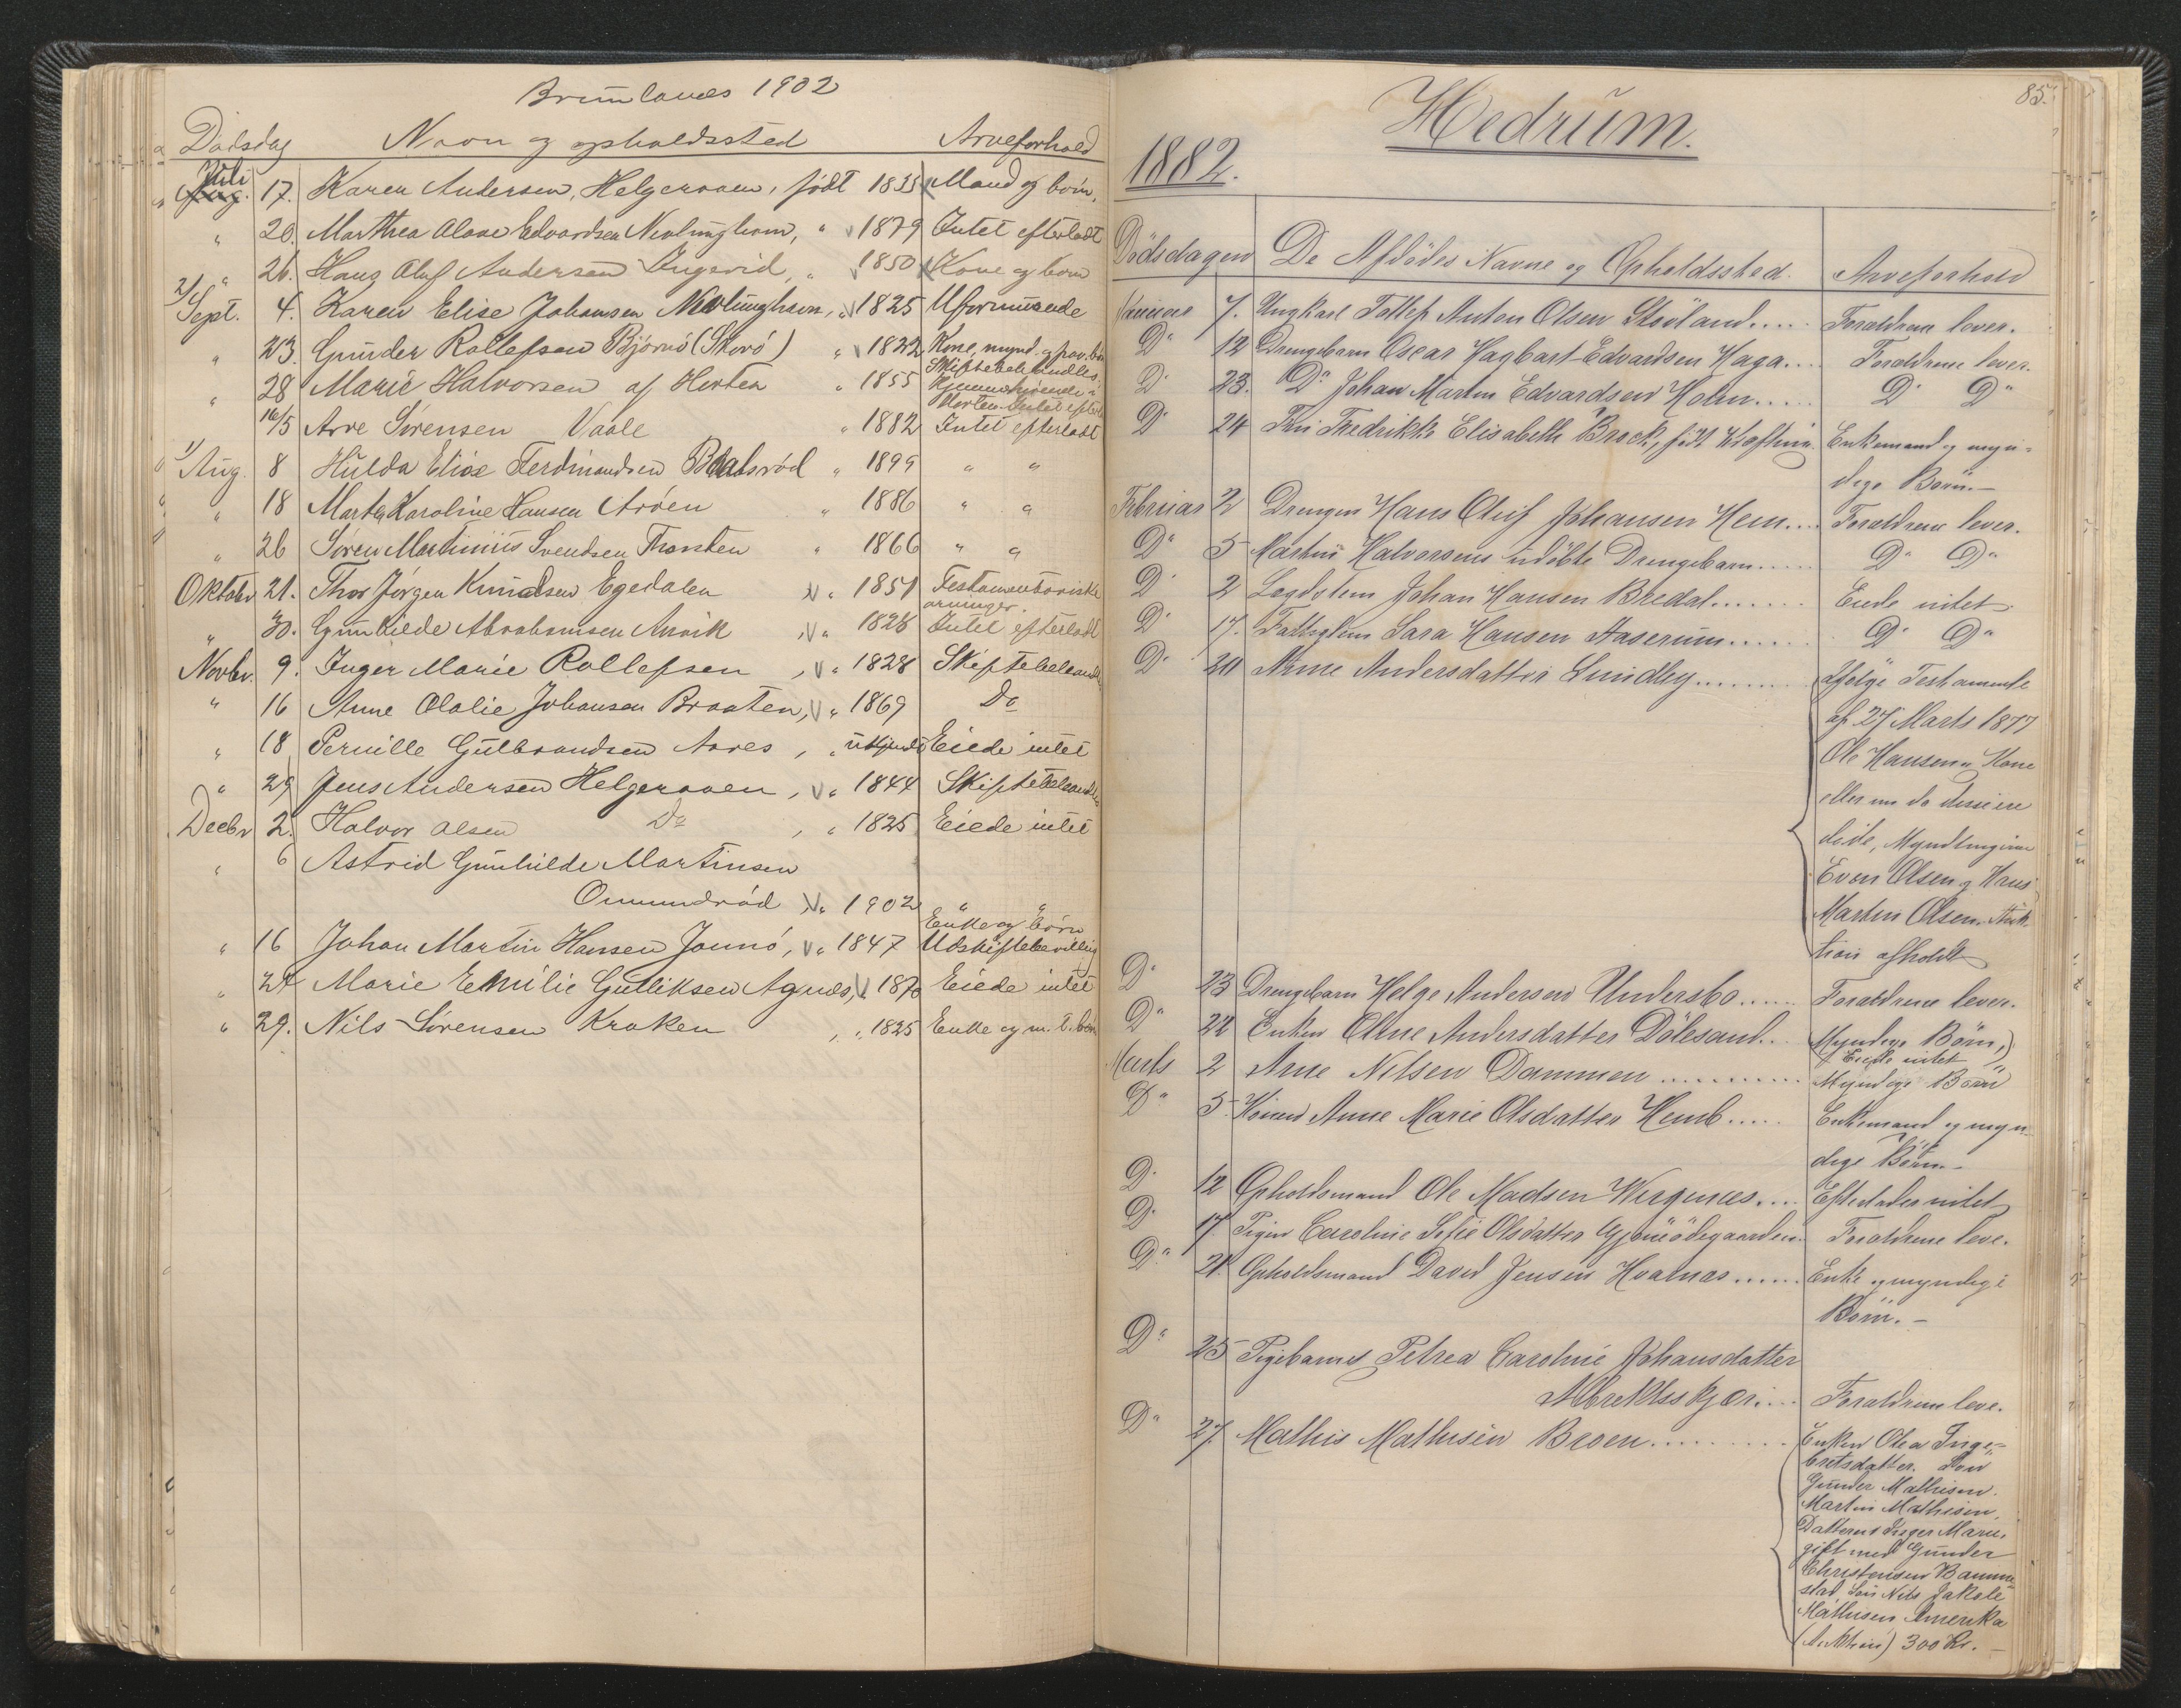 Brunlanes 1902
Dødsdag Navn og opholdssted Arveforhold
Juli 17. Karen Andersen, Helgeroaen, født 1835 Mand og børn.
" 20. Marthea Olave Edvardsen Nevlunghavn, " 1879 Intet efterladt
" 26. Hans Oluf Andersen " 1850 Kone og børn
2/ Sept. 4. Karen Elise Johansen Nevlunghavn, " 1825 Uformuende
" 23. Gunder Rollefsen Bjørnø (Storø) " 1822 Kone, mynd. og
Skiftebehandles
" 28 Marie Halvorsen af Horten " 1855 Hjemmehørende i
Horten. Intet efterl
16/5 Arve Sørensen Vaale " 1882 Intet efterladt
1/ Aug. 8 Hulda Elise Ferdinandsen " 1899 " "
" 18 Marta Karoline Hansen Arøen " 1886 " "
" 26 Søren Martinius Svendsen " 1866 " "
Oktober 21. Thor Jørgen Knudsen Egedalen " 1851 Testamentariske
arvinger.
" 30. Gunhilde Abrahamsen Anvik " 1828 Intet efterladt
Novbr. 9. Inger Marie Rollefsen , " 1828 Skiftebehandles
" 16 Anne Olalie Johansen Braaten, " 1869 Do
" 18 Pernille Gulbrandsen Aares , " ubekjendt Eiede intet
" 29 Jens Andersen Helgeroaen , " 1844 Skiftebehandles
Decbr 2. Halvor Olsen Do , " 1825 Eiede intet
" 6 Astrid Gunhilde Martinsen
Omundrød " 1902 " "
Enke og børn
" 16 Johan Martin Hansen Jonnø, " 1847 Udskiftebevilling
" 24 Marie Emilie Gulliksen Agnes, 1870 Eiede intet
" 29. Nils Sørensen Kroken , " 1825 Enke og m. b. børn
85.
Hedrum.
1882.
Dødsdagen De Afdødes Navne og Opholdssted. Arveforhold
Januar 7. Ungkarl Tollef Anton Olsen Støland..... Forældrene lever.
Do 12 Drengebarn Oscar Hagbart Edvardsen Haga.... Forældrene lever.
Do 23. Do Johan Martin Edvardsen Holm..... Do Do
Do 24 Fru Fredrikke Elisabeth Brock, født Enkemand og myn-
dige Børn.-
Februar 2 Drengen Hans Oluf Johansen Hem.... Forældrene lever.
Do 5 Martin Halvorsens udøbte Drengebarn..... Do Do
Do 2 Lægdslem Johan Hansen Bredal....... Eiede intet
Do 17. Fattiglem Sara Hansen Haserum....... Do Do
Do 20 Anne Andersdatter Lundby......... Ifølge Testamente
af 27 Marts 1877
Ole Hansen Kone
eller om da disse ere
døde, Myndlingerne
Even Olsen og
Martin Olsen. Auk-
tion afholdt
Do 23 Drengebarn Helge Andersen Undersbo...... Forældrene lever.
Do 22 Enken Anne Andersdatter Dølesand.. Myndige Børn,
Eiede intet
Marts 2 Arne Nilsen Dammen ............ Myndige Børn
Do 5. Konen Anne Marie Olsdatter Hemb..... Enkemand og myn-
dige Børn.-
Do 12 Opholdsmand Ole Madsen Wergenæs.... Efterlader intet
Do 17. Pigen Caroline Sofie Olsdatter Forældrene leve.
Do 21 Opholdsmand David Jensen Hvatnæs...... Enke og myndige
Børn.-
Do 25 Pigebarnet Petrea Caroline Johansdatter
Albrektsskjær.... Forældrene leve.
Do 27. Mathis Mathisen Broen......... Enken Olea Inge-
bretsdatter. Søn
Gunder Mathisen.
Martin Mathisen,
Datteren Inger Marie
gift med Gunder
Christensen Bamme-
stad Søn Nils Jakob
Mathisen Amerika
(Auktion) 300 Kr.-